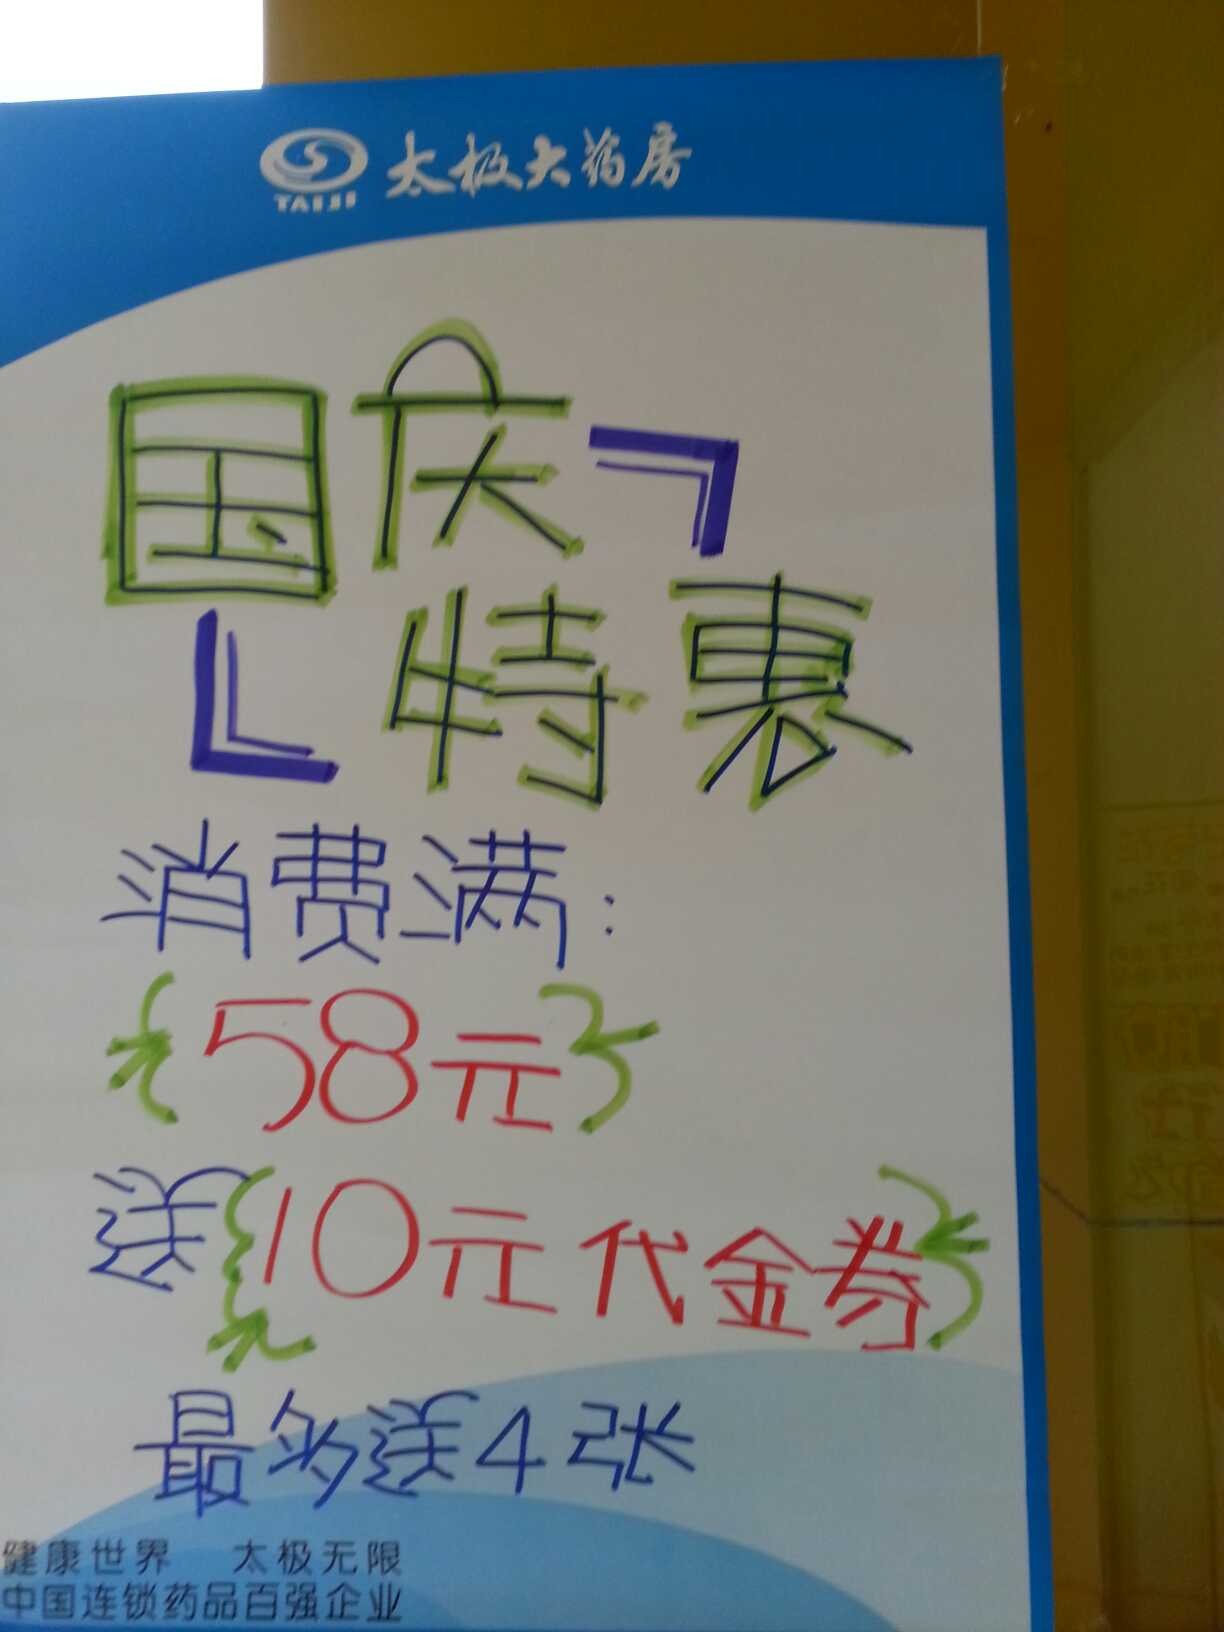 TAIJI 太极大药房
国庆
特惠
消费满：
58元
送10元代金券
最多送4张
健康世界 太极无限
中国连锁药品百强企业